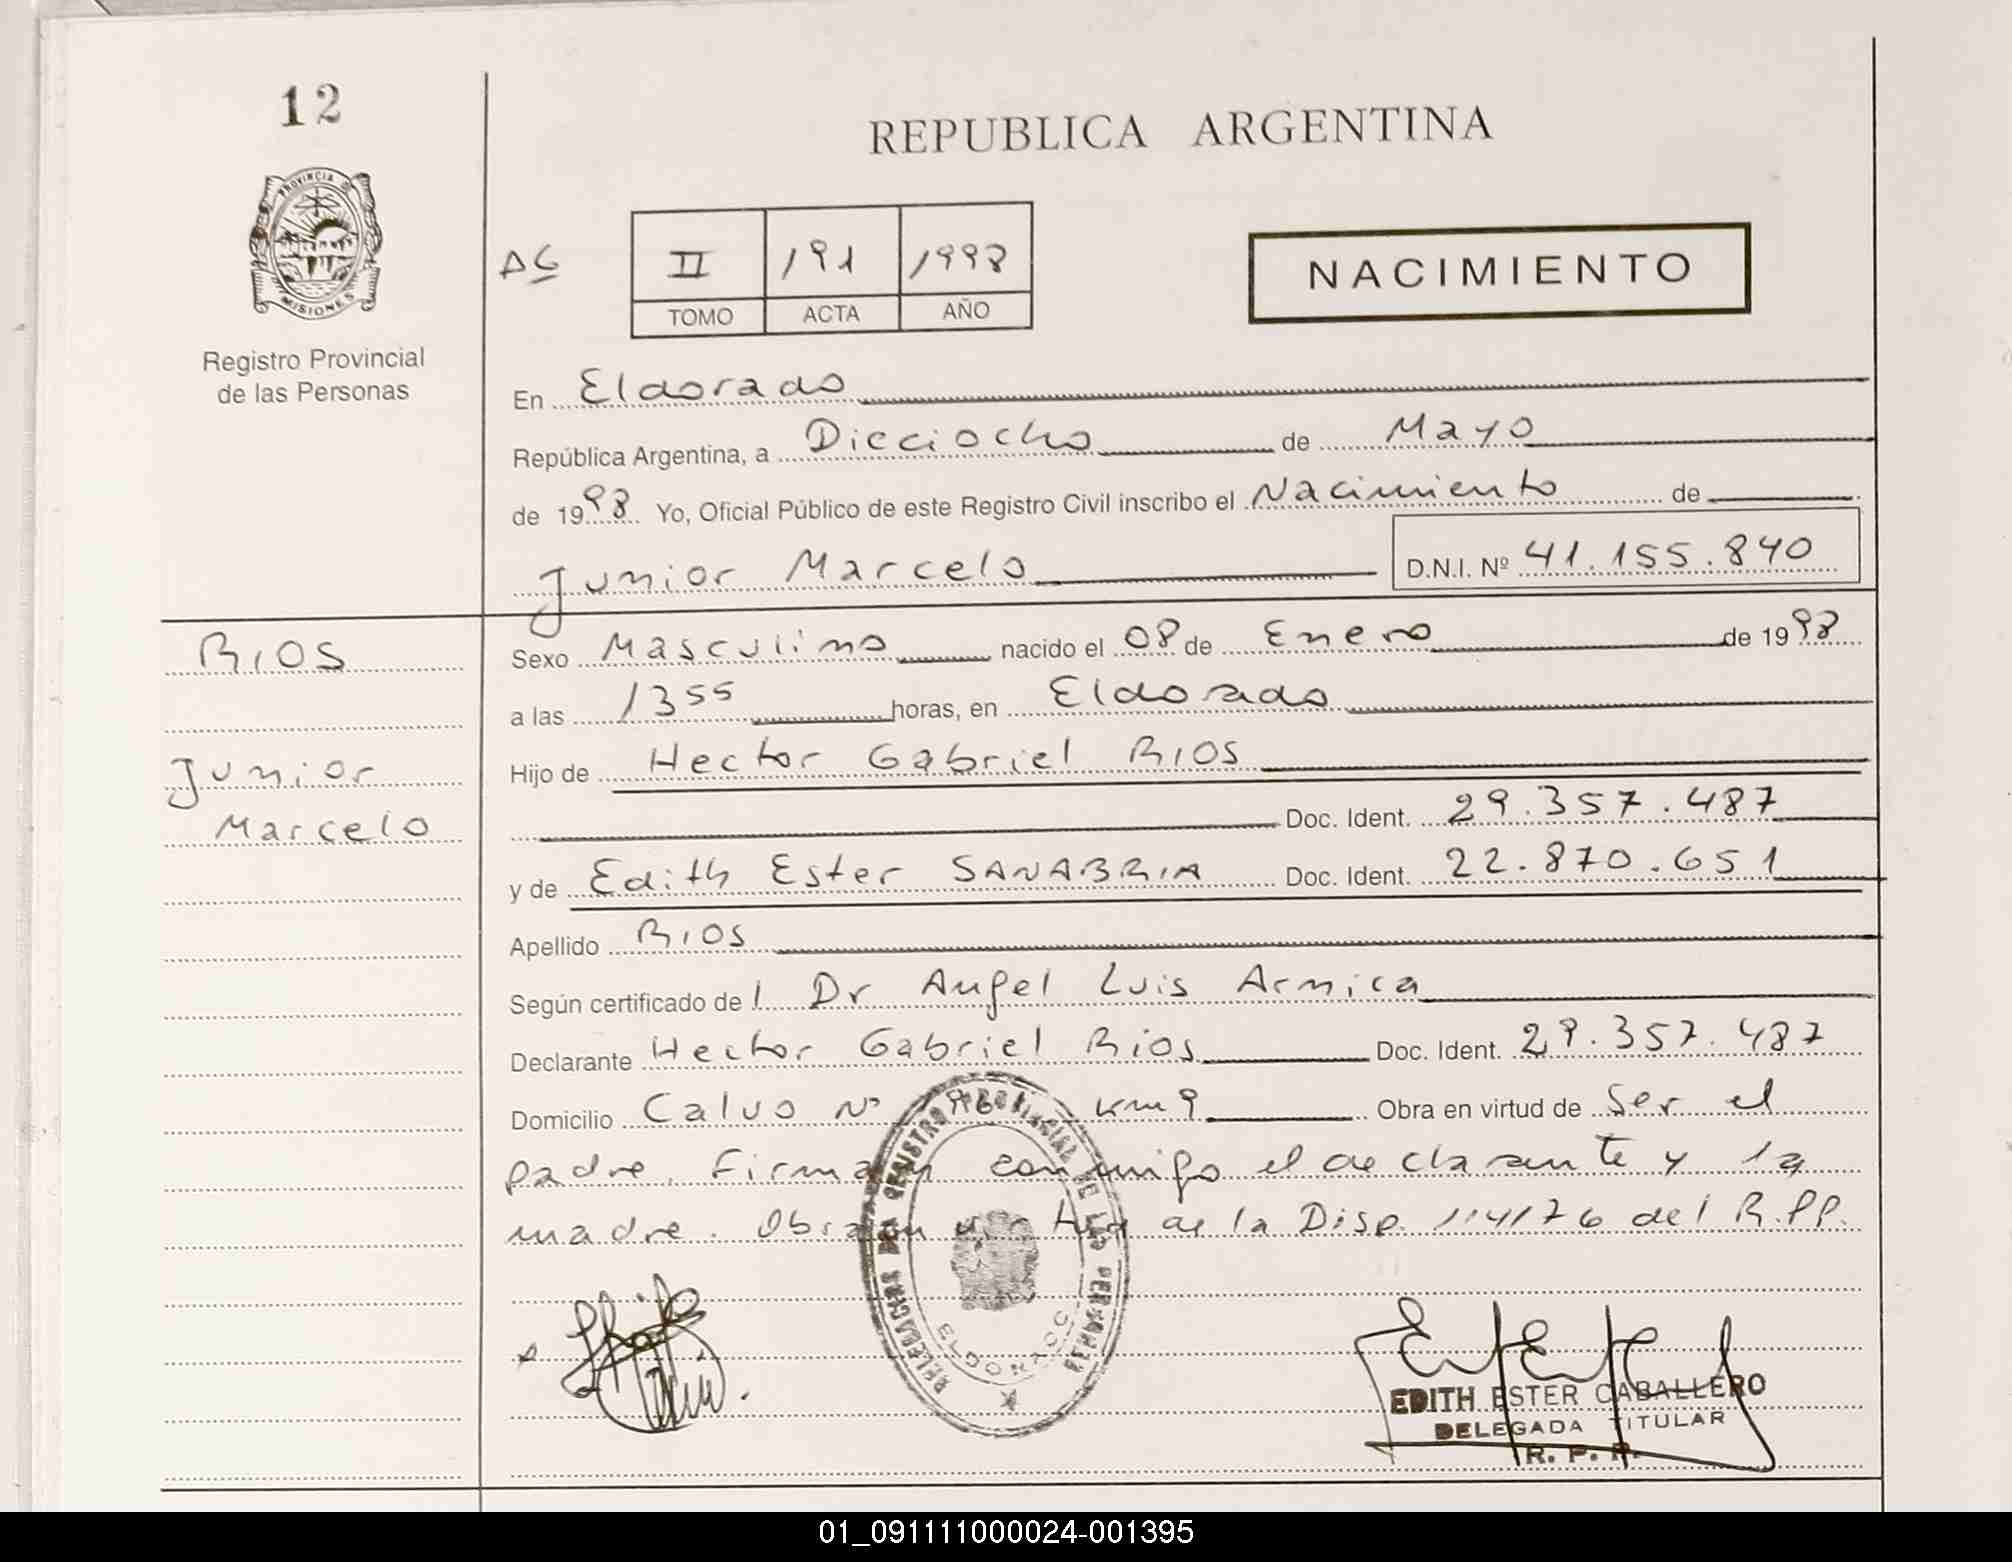 12
REPUBLICA ARGENTINA
PROVINCIA DE MISIONES
Registro Provincial
de las Personas
II 191 1998
TOMO ACTA AÑO
NACIMIENTO
En Eldorado
República Argentina, a Dieciocho de Mayo
de 1998 Yo, Oficial Público de este Registro Civil inscribo el Nacimiento de
Junior Marcelo D.N.I. Nº 41.155.840
RIOS
Junior
Marcelo
Sexo Masculino nacido el 08 de Enero de 1998
a las 1355 horas, en Eldorado
Hijo de Hector Gabriel RIOS
Doc. Ident. 29.357.487
y de Edith Ester SANABRIA Doc. Ident. 22.870.651
Apellido RIOS
Según certificado del Dr Angel Luis Armica
Declarante Hector Gabriel Rios Doc. Ident. 29.357.487
Domicilio Calvo Nº km 9 Obra en virtud de Ser el
padre. Firman conmigo el declarante y la
madre. Obra en virtud de la Disp. 114/76 del R.P.P.
DELEGACION DEL REGISTRO PROVINCIAL DE LAS PERSONAS
ELDORADO
EDITH ESTER CABALLERO
DELEGADA TITULAR
R. P. P.
01_091111000024-001395